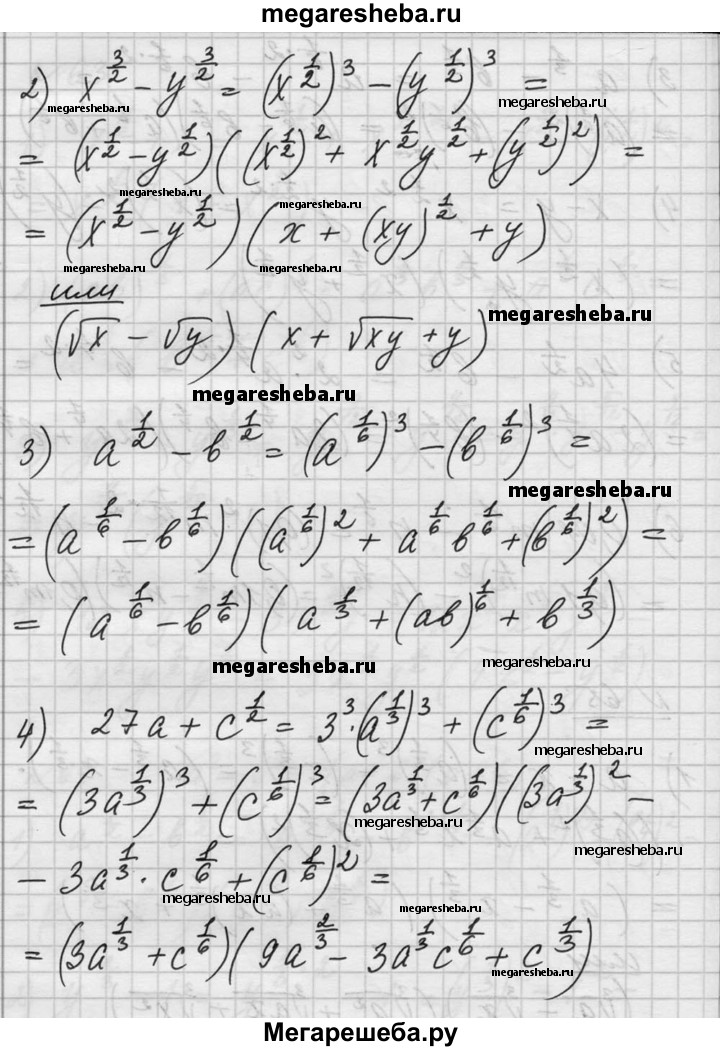 megaresheba.ru
2) x^{3/2} - y^{3/2} = (x^{1/2})^3 - (y^{1/2})^3 =
megaresheba.ru megaresheba.ru
= (x^{1/2} - y^{1/2})((x^{1/2})^2 + x^{1/2} y^{1/2} + (y^{1/2})^2) =
megaresheba.ru megaresheba.ru
= (x^{1/2} - y^{1/2})(x + (xy)^{1/2} + y)
megaresheba.ru megaresheba.ru
или
megaresheba.ru
(√x - √y)(x + √xy + y)
megaresheba.ru
3) a^{1/2} - в^{1/2} = (a^{1/6})^3 - (в^{1/6})^3 =
megaresheba.ru
= (a^{1/6} - в^{1/6})((a^{1/6})^2 + a^{1/6} в^{1/6} + (в^{1/6})^2) =
= (a^{1/6} - в^{1/6})(a^{1/3} + (aв)^{1/6} + в^{1/3})
megaresheba.ru megaresheba.ru
4) 27a + c^{1/2} = 3^3·(a^{1/3})^3 + (c^{1/6})^3 =
megaresheba.ru
= (3a^{1/3})^3 + (c^{1/6})^3 = (3a^{1/3} + c^{1/6})((3a^{1/3})^2 -
megaresheba.ru megaresheba.ru
megaresheba.ru
- 3a^{1/3} · c^{1/6} + (c^{1/6})^2 =
megaresheba.ru megaresheba.ru
= (3a^{1/3} + c^{1/6})(9a^{2/3} - 3a^{1/3} c^{1/6} + c^{1/3})
megaresheba.ru
Мегарешеба.ру